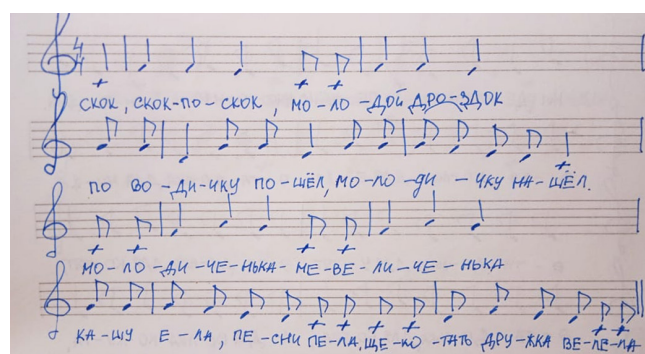 4/4
СКОК, СКОК-ПО-СКОК, МО-ЛО-ДОЙ ДРО-ЗДОК
ПО ВО-ДИ-ЧКУ ПО-ШЁЛ, МО-ЛО-ДИ-ЧКУ НА-ШЁЛ.
МО-ЛО-ДИ-ЧЕ-НЬКА-НЕ-ВЕ-ЛИ-ЧЕ-НЬКА
КА-ШУ Е-ЛА, ПЕ-СНИ ПЕ-ЛА, ЩЕ-КО-ТАТЬ ДРУ-ЖКА ВЕ-ЛЕ-ЛА